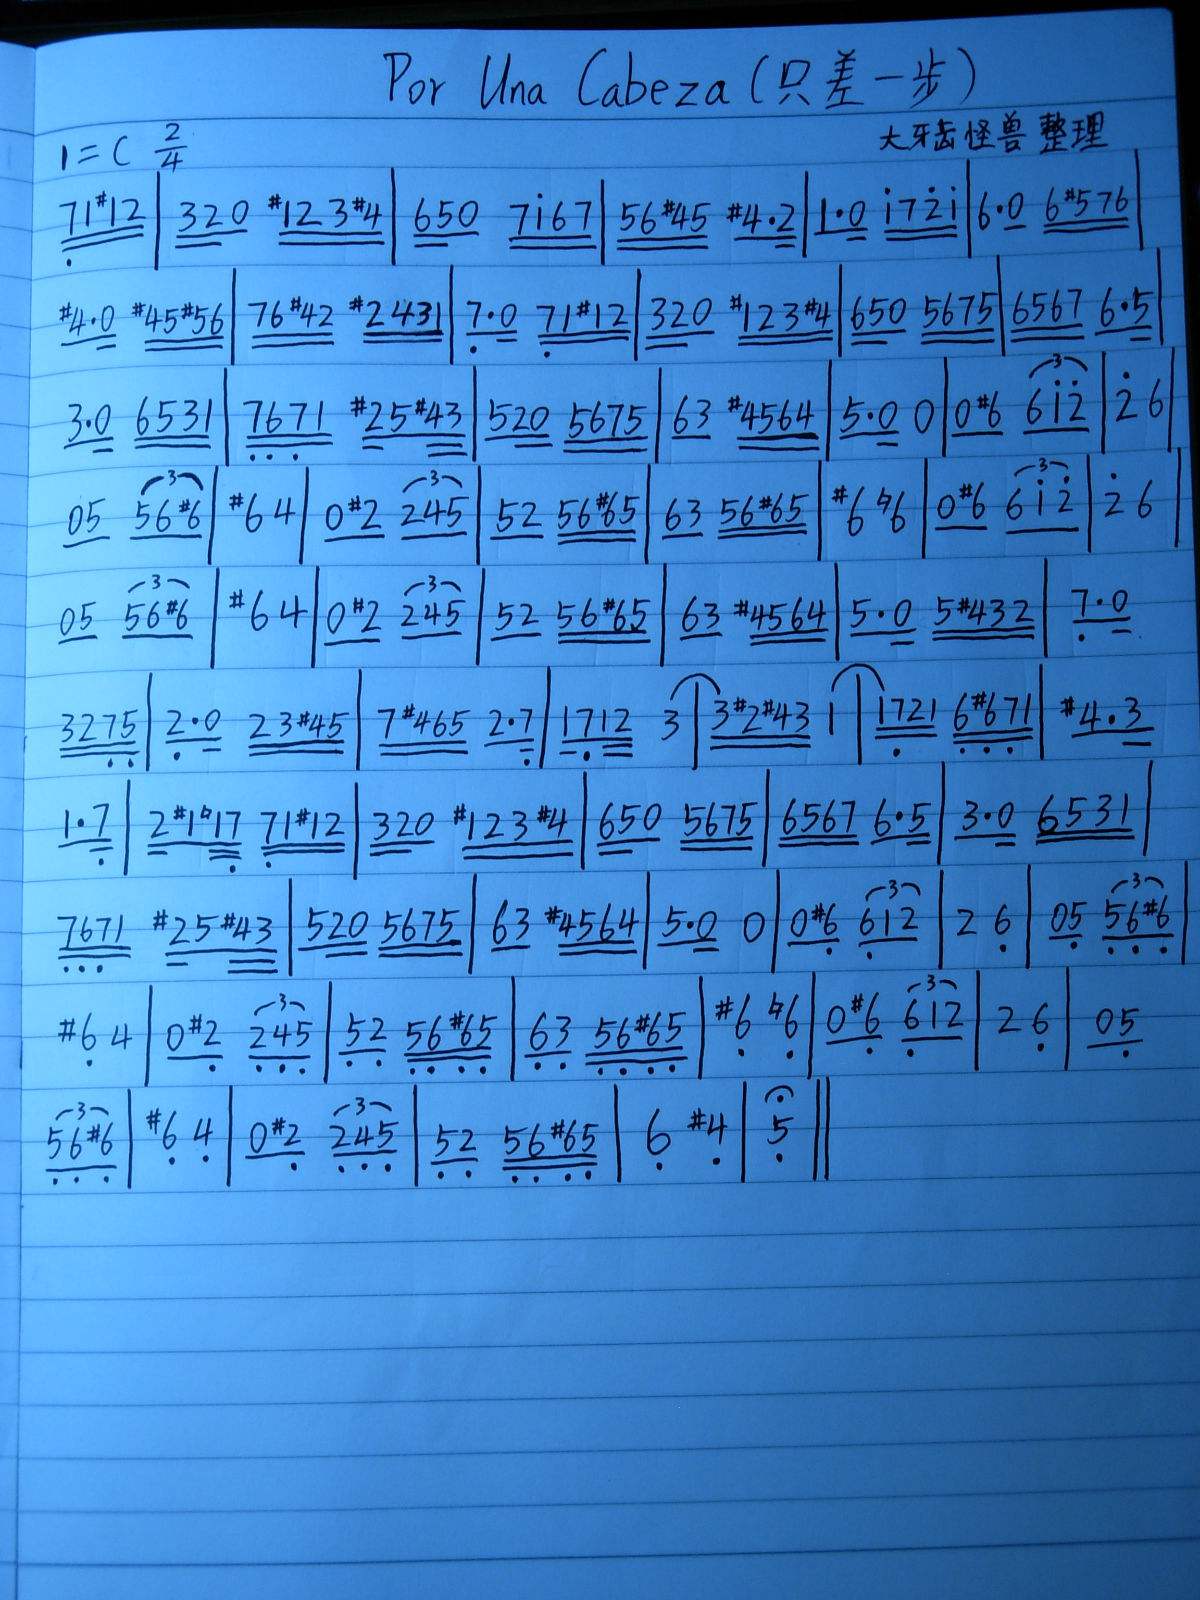 Por Una Cabeza (只差一步)
1=C 2/4 大牙齿怪兽 整理
71#12 | 320 #123#4 | 650 7i67 | 56#45 #4·2 | 1·0 i72̇i | 6·0 6#576 |
#4·0 #45#56 | 76#42 #2431 | 7·0 71#12 | 320 #123#4 | 650 5675 | 6567 6·5 |
3·0 6531 | 7671 #25#43 | 520 5675 | 63 #4564 | 5·0 0 | 0#6 3 6i2̇ | 2̇ 6 |
05 3 56#6 | #6 4 | 0#2 3 245 | 52 56#65 | 63 56#65 | #6 ♮6 | 0#6 3 6i2̇ | 2̇ 6 |
05 3 56#6 | #6 4 | 0#2 3 245 | 52 56#65 | 63 #4564 | 5·0 5#432 | 7·0
3275 | 2·0 23#45 | 7#465 2·7 | 1712 3 | 3#2#43 1 | 1721 6#671 | #4·3
1·7 | 2#1♮17 71#12 | 320 #123#4 | 650 5675 | 6567 6·5 | 3·0 6531 |
7671 #25#43 | 520 5675 | 63 #4564 | 5·0 0 | 0#6 3 612 | 2 6 | 05 3 56#6 |
#6 4 | 0#2 3 245 | 52 56#65 | 63 56#65 | #6 ♮6 | 0#6 3 612 | 2 6 | 05
3 56#6 | #6 4 | 0#2 3 245 | 52 56#65 | 6 #4 | 5 ||